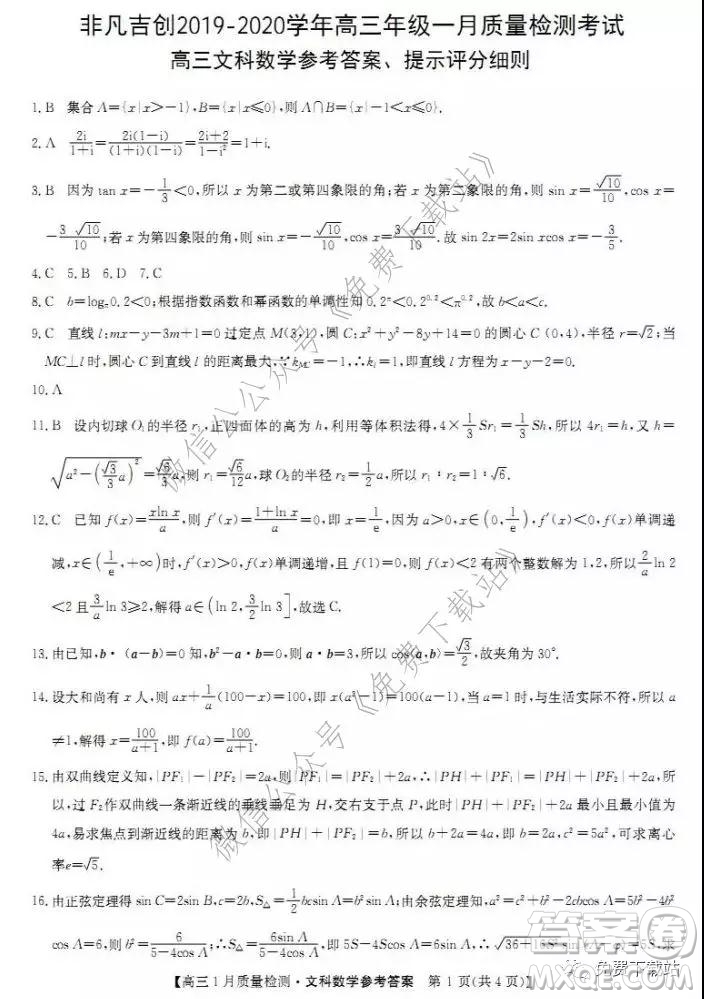 非凡吉创2019-2020学年高三年级一月质量检测考试
高三文科数学参考答案、提示评分细则
1. B 集合A={x|x>-1},B={x|x≤0},则A∩B={x|-1<x≤0}.
2. A 2i/(1+i)=2i(1-i)/((1+i)(1-i))=(2i+2)/(1-i²)=1+i.
3. B 因为tan x=-1/3<0,所以x为第二或第四象限的角;若x为第二象限的角,则sin x=√10/10,cos x=
-3√10/10;若x为第四象限的角,则sin x=-√10/10,cos x=3√10/10.故sin 2x=2sin xcos x=-3/5.
4. C 5. B 6. D 7. C
8. C b=logπ0.2<0;根据指数函数和幂函数的单调性知0.2^π<0.2^0.2<π^0.2,故b<a<c.
9. C 直线l:mx-y-3m+1=0过定点M(3,1),圆C:x²+y²-8y+14=0的圆心C(0,4),半径r=√2;当
MC⊥l时,圆心C到直线l的距离最大,∵k_MC=-1,∴k_l=1,即直线l方程为x-y-2=0.
10. A
11. B 设内切球O₁的半径r₁,正四面体的高为h,利用等体积法得,4×1/3Sr₁=1/3Sh,所以4r₁=h,又h=
√(a²-(√3/3a)²)=√6/3a,则r₁=√6/12a,球O₂的半径r₂=1/2a,所以r₁:r₂=1:√6.
12. C 已知f(x)=xln x/a,则f′(x)=(1+ln x)/a=0,即x=1/e,因为a>0,x∈(0,1/e),f′(x)<0,f(x)单调递
减,x∈(1/e,+∞)时,f′(x)>0,f(x)单调递增,且x>0,则f(x)<2有两个整数解为1,2,所以2/aln 2
<2且3/aln 3≥2,解得a∈(ln 2,3/2ln 3],故选C.
13. 由已知,b·(a-b)=0知,b²-a·b=0,则a·b=3,所以cos⟨a,b⟩=√3/2,故夹角为30°.
14. 设大和尚有x人,则ax+1/a(100-x)=100,即x(a²-1)=100(a-1),当a=1时,与生活实际不符,所以a
≠1,解得x=100/(a+1),即f(a)=100/(a+1).
15. 由双曲线定义知,|PF₁|-|PF₂|=2a,则|PF₁|=|PF₂|+2a,∴|PH|+|PF₁|=|PH|+|PF₂|+2a,所
以,过F₂作双曲线一条渐近线的垂线垂足为H,交右支于点P,此时|PH|+|PF₂|+2a最小且最小值为
4a,易求焦点到渐近线的距离为b,即|PH|+|PF₂|=b,所以b+2a=4a,即b=2a,c²=5a²,可求离心
率e=√5.
16. 由正弦定理得sin C=2sin B,c=2b,S△=1/2bcsin A=b²sin A;由余弦定理得,a²=c²+b²-2cbcos A=5b²-4b²
cos A=6,则b²=6/(5-4cos A),所以S△=6sin A/(5-4cos A),即5S-4Scos A=6sin A,5S=4Scos A+6sin A,∴√(36+16S²
【高三1月质量检测·文科数学参考答案 第1页(共4页)】
微信公众号《免费下载站》
微信公众号《免费下载站》
答案圈
免费下载站